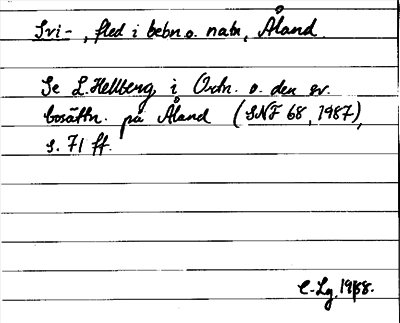 Svi-, fled i bebn o. natn, Åland.
Se L. Hellberg i Ortn. o. den sv.
bosättn. på Åland (SNF 68, 1987),
s. 71 ff.
C-Lg, 1988.